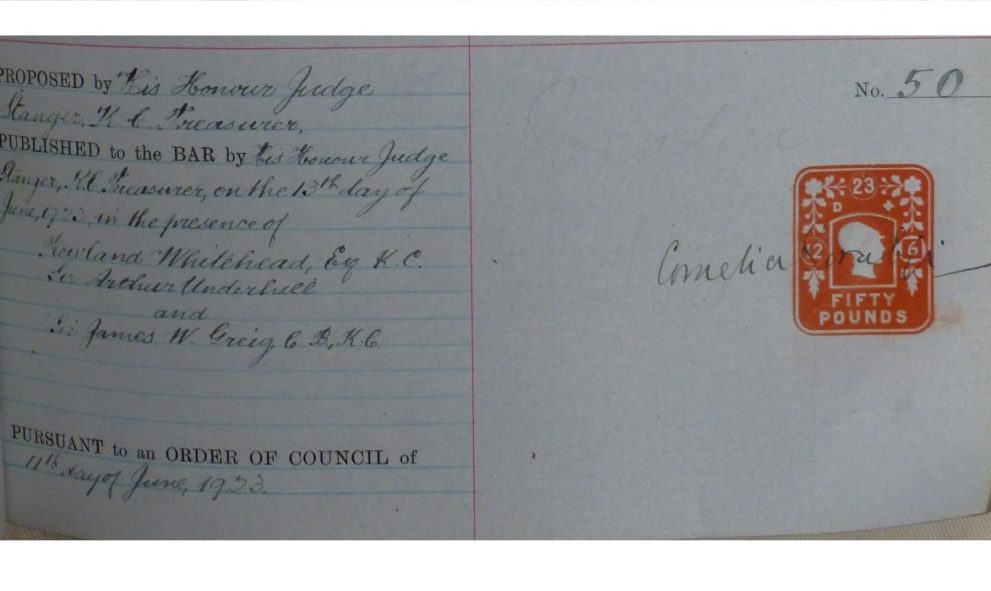 PROPOSED by His Honour Judge
Stanger, K C Treasurer,
PUBLISHED to the BAR by His Honour Judge
Stanger, KC Treasurer, on the 13th day of
June, 1923, in the presence of
Rowland Whitehead, Esq K.C.
Sir Arthur Underhill
and
Sir James W. Greig C B, K.C
PURSUANT to an ORDER OF COUNCIL of
11th day of June, 1923.
No. 50
23
D
12 6
Cornelia Sorabji
FIFTY
POUNDS